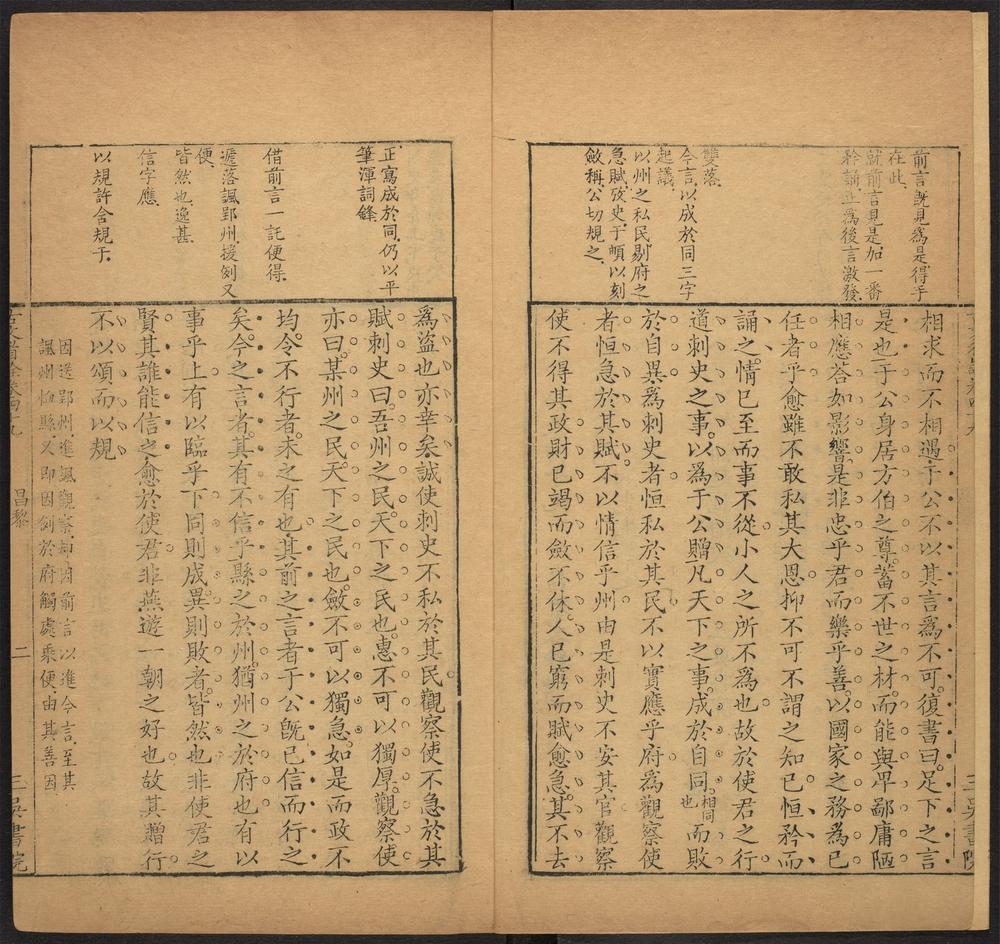 前言旣見為是得乎
在此
就前言見是加一番
矜誦正為後言激發
雙落
今言以成於同三字
起議
以州之私民剔府之
急賦攷史于頔以刻
斂稱公切規之
相求而不相遇于公不以其言為不可復書曰足下之言
是也于公身居方伯之尊蓄不世之材而能與卑鄙庸陋
相應答如影響是非忠乎君而樂乎善以國家之務為己
任者乎愈雖不敢私其大恩抑不可不謂之知己恒矜而
誦之情已至而事不從小人之所不為也故於使君之行
道刺史之事以為于公贈凡天下之事成於自同相同也而敗
於自異為刺史者恒私於其民不以實應乎府為觀察使
者恒急於其賦不以情信乎州由是刺史不安其官觀察
使不得其政財已竭而斂不休人已窮而賦愈急其不去
三吳書院
正寫成於同仍以平
筆渾詞鋒
借前言一託便得
遞落諷郢州援例又
便
皆然也逸甚
信字應
以規許舍規于
為盜也亦幸矣誠使刺史不私於其民觀察使不急於其
賦刺史曰吾州之民天下之民也惠不可以獨厚觀察使
亦曰某州之民天下之民也斂不可以獨急如是而政不
均令不行者未之有也其前之言者于公旣已信而行之
矣今之言者其有不信乎縣之於州猶州之於府也有以
事乎上有以臨乎下同則成異則敗者皆然也非使君之
賢其誰能信之愈於使君非燕遊一朝之好也故其贈行
不以頌而以規
因送郢州進諷觀察却因前言以進今言至其
諷州恤縣又即因例於府觸處乘便由其善因
昌黎
二
三吳書院